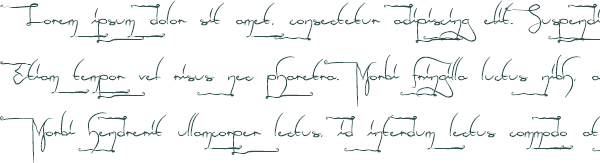 Lorem ipsum dolor sit amet, consectetur adipiscing elit. Suspendi
Etiam tempor vel risus nec pharetra. Morbi fringilla luctus nibh, a
Morbi hendrerit ullamcorper lectus, id interdum lectus commodo at